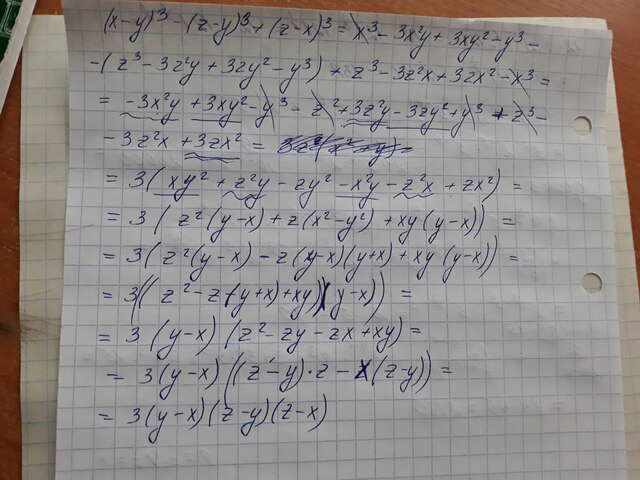 (x-y)³-(z-y)³+(z-x)³=x³-3x²y+3xy²-y³-
-(z³-3z²y+3zy²-y³)+z³-3z²x+3zx²-x³=
=-3x²y+3xy²-y³-z³+3z²y-3zy²+y³+z³-
-3z²x+3zx²=
=3(xy²+z²y-zy²-x²y-z²x+zx²)=
=3(z²(y-x)+z(x²-y²)+xy(y-x))=
=3(z²(y-x)-z(y-x)(y+x)+xy(y-x))=
=3((z²-z(y+x)+xy)(y-x))=
=3(y-x)(z²-zy-zx+xy)=
=3(y-x)((z-y)·z-x(z-y))=
=3(y-x)(z-y)(z-x)